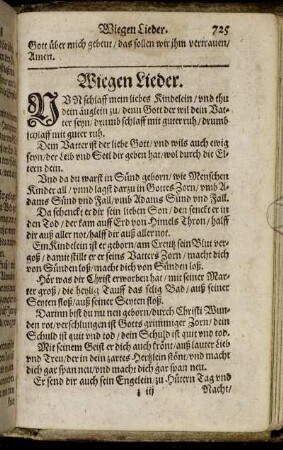 Wiegen Lieder. 725
Gott über mich gebeut/ das sollen wir jhm vertrauen/
Amen.
Wiegen Lieder.
NUN schlaff mein liebes Kindelein/ und thu
dein äuglein zu/ denn Gott der wil dein Vat-
ter seyn/ drumb schlaff mit guter ruh/ drumb
schlaff mit guter ruh.
Dein Vatter ist der liebe Gott/ und wils auch ewig
seyn/ der Leib und Seel dir geben hat/ wol durch die El-
tern dein.
Und da du warst in Sünd geborn/ wie Menschen
Kinder all/ vnnd lagst darzu in Gottes Zorn/ vmb A-
dams Sünd und Fall/ vmb Adams Sünd vnd Fall.
Da schenckt er dir sein lieben Son/ den senckt er in
den Tod/ der kam auff Erd von Himels Thron/ halff
dir auß aller not/ halff dir auß aller not.
Ein Kindlein ist er geborn/ am Creutz sein Blut ver-
goß/ damit stillt er er seins Vatters Zorn/ macht dich
von Sünden loß/ macht dich von Sünden loß.
Hör was dir Christ erworben hat/ mit seiner Mar-
ter groß/ die heylig Tauff das selig Bad/ auß seiner
Seyten floß/ auß seiner Seyten floß.
Darinn bist du nu neu geborn/ durch Christi Wun-
den rot/ verschlungen ist Gottes grimmiger Zorn/ dein
Schuld ist quit vnd tod/ dein Schuld ist quit vnd tod.
Mit seinem Geist er dich auch krönt/ auß lauter Lieb
und Treu/ der in dein zartes Hertzlein stönt/ vnd macht
dich gar span neu/ und macht dich gar span neu.
Er send dir auch sein Engelein/ zu Hütern Tag vnd
iij Nacht/